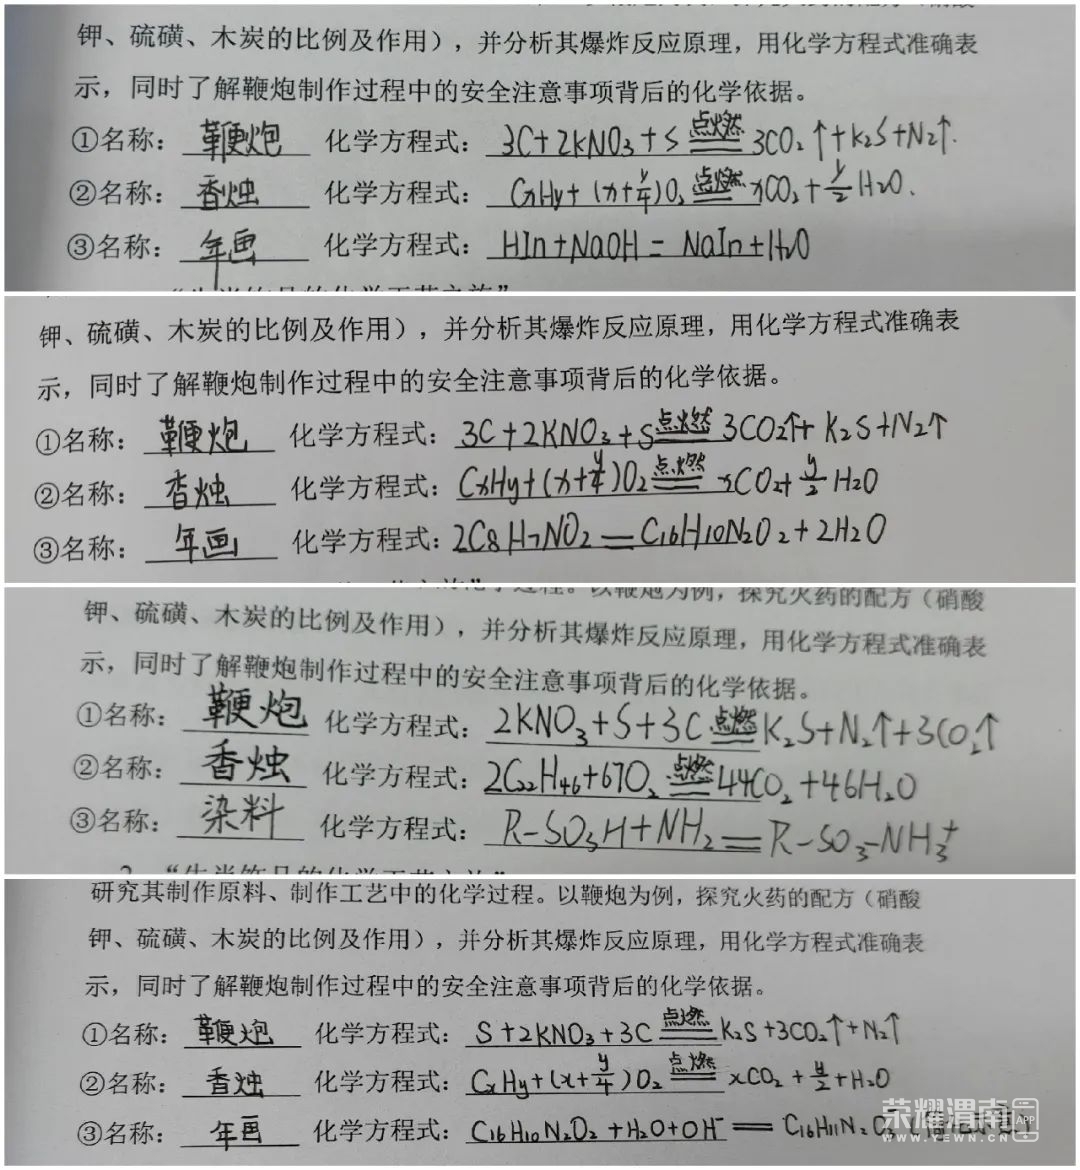 钾、硫磺、木炭的比例及作用），并分析其爆炸反应原理，用化学方程式准确表
示，同时了解鞭炮制作过程中的安全注意事项背后的化学依据。
①名称：鞭炮 化学方程式：3C+2KNO₃+S 点燃 3CO₂↑+K₂S+N₂↑.
②名称：香烛 化学方程式：CxHy+(x+y/4)O₂ 点燃 xCO₂+y/2H₂O.
③名称：年画 化学方程式：HIn+NaOH=NaIn+H₂O
钾、硫磺、木炭的比例及作用），并分析其爆炸反应原理，用化学方程式准确表
示，同时了解鞭炮制作过程中的安全注意事项背后的化学依据。
①名称：鞭炮 化学方程式：3C+2KNO₃+S 点燃 3CO₂↑+K₂S+N₂↑
②名称：香烛 化学方程式：CxHy+(x+y/4)O₂ 点燃 xCO₂+y/2H₂O
③名称：年画 化学方程式：2C₈H₇NO₂=C₁₆H₁₀N₂O₂+2H₂O
学过程。以鞭炮为例，探究火药的配方（硝酸
钾、硫磺、木炭的比例及作用），并分析其爆炸反应原理，用化学方程式准确表
示，同时了解鞭炮制作过程中的安全注意事项背后的化学依据。
①名称：鞭炮 化学方程式：2KNO₃+S+3C 点燃 K₂S+N₂↑+3CO₂↑
②名称：香烛 化学方程式：2C₂₂H₄₆+67O₂ 点燃 44CO₂+46H₂O
③名称：染料 化学方程式：R-SO₃H+NH₂=R-SO₃-NH₃⁺
研究其制作原料、制作工艺中的化学过程。以鞭炮为例，探究火药的配方（硝酸
钾、硫磺、木炭的比例及作用），并分析其爆炸反应原理，用化学方程式准确表
示，同时了解鞭炮制作过程中的安全注意事项背后的化学依据。
①名称：鞭炮 化学方程式：S+2KNO₃+3C 点燃 K₂S+3CO₂↑+N₂↑
②名称：香烛 化学方程式：CxHy+(x+y/4)O₂ 点燃 xCO₂+y/2+H₂O
③名称：年画 化学方程式：C₁₆H₁₀N₂O₂+H₂O+OH⁻=C₁₆H₁₁N₂O₃
荣耀渭南 APP
WWW.YEWN.CN